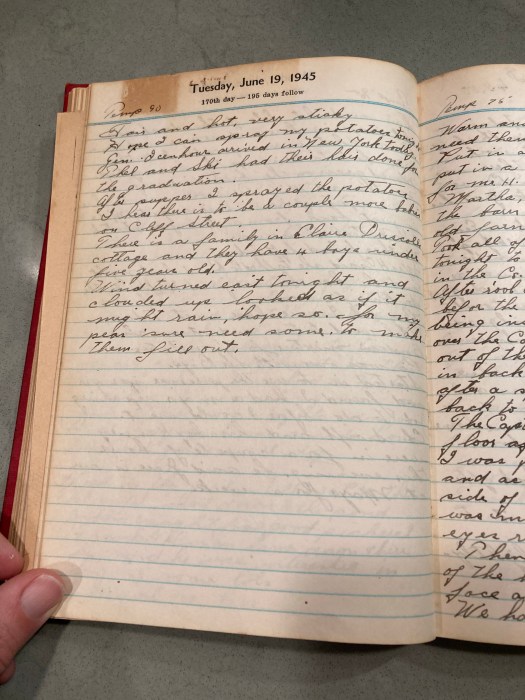 Tuesday, June 19, 1945
170th day—195 days follow
Temp 90
Fair and hot, very sticky
Hope I can spray my potatoes tonight
Gen. Isenhour arrived in New York today
Phil and Ski had their hair done for
the graduation.
After supper I sprayed the potatoes
I hear there is to be a couple more babies
on Cliff Street
There is a family in Claire Driscoll
cottage and they have 4 boys under
five years old.
Wind turned east tonight and
clouded up looked as if it
might rain, hope so. for my
peas sure need some, to make
them fill out.
Temp 75
Warm and
need them
Put in a
put in a
for me H.
Martha,
the barn
old farm
Took all of
tonight so
in the Co
After
before the
being in
over the Ca
out of the
in back
after a s
back to
The Cap
floor as
I was
and as
side of
was
eyes r
Then
of the
face a
We ha